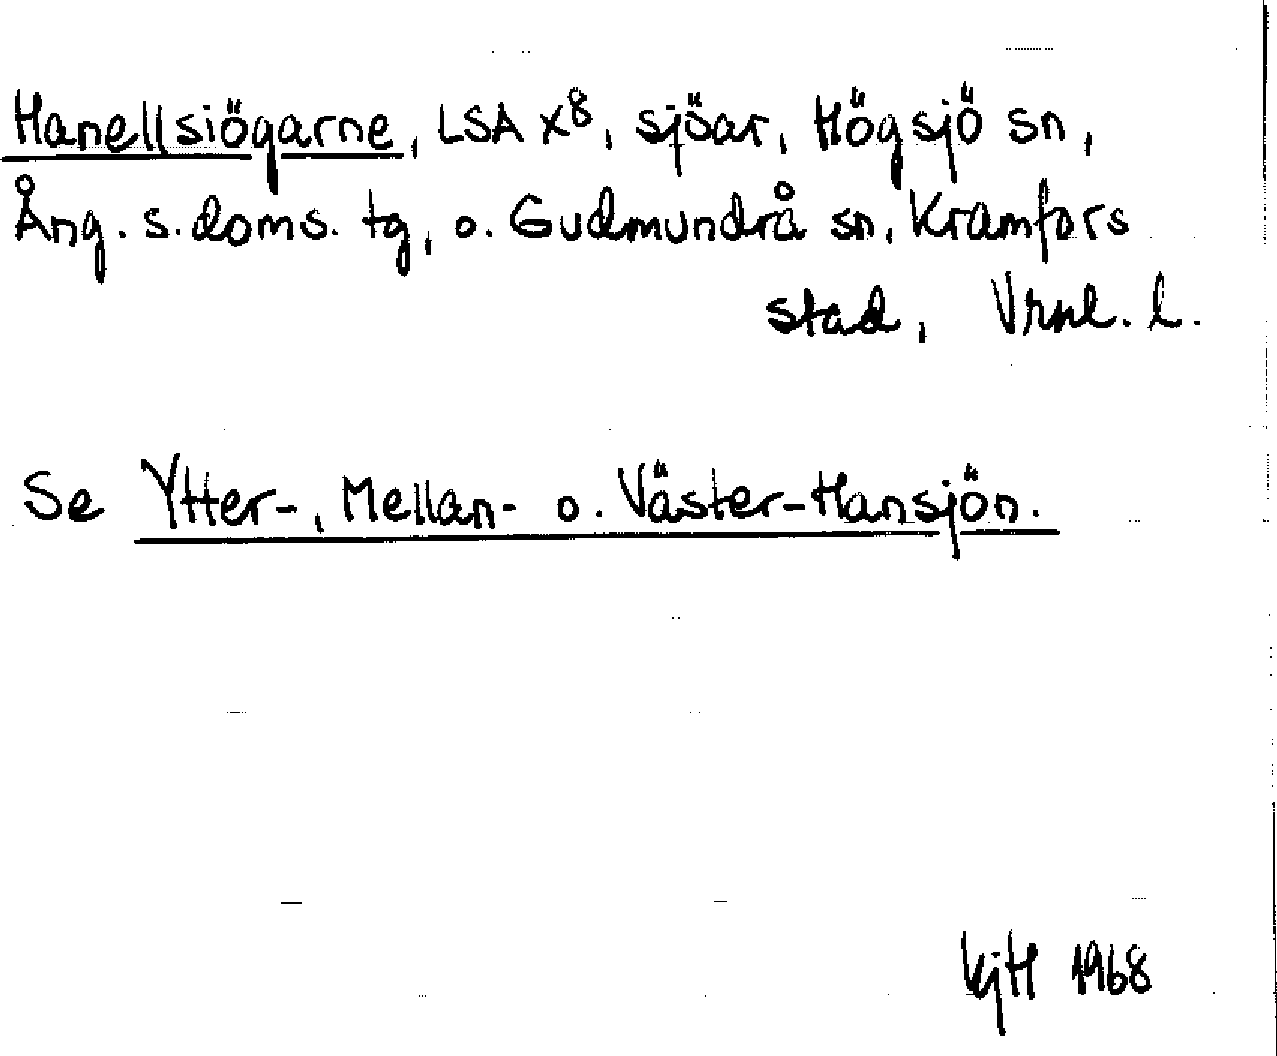 Hanellsiögarne, LSA X8, sjöar, Högsjö sn,
Ång. s. doms. tg, o. Gudmundrå sn, Kramfors
stad, Vrnl. l.
Se Ytter-, Mellan- o. Väster-Hansjön.
KjH 1968